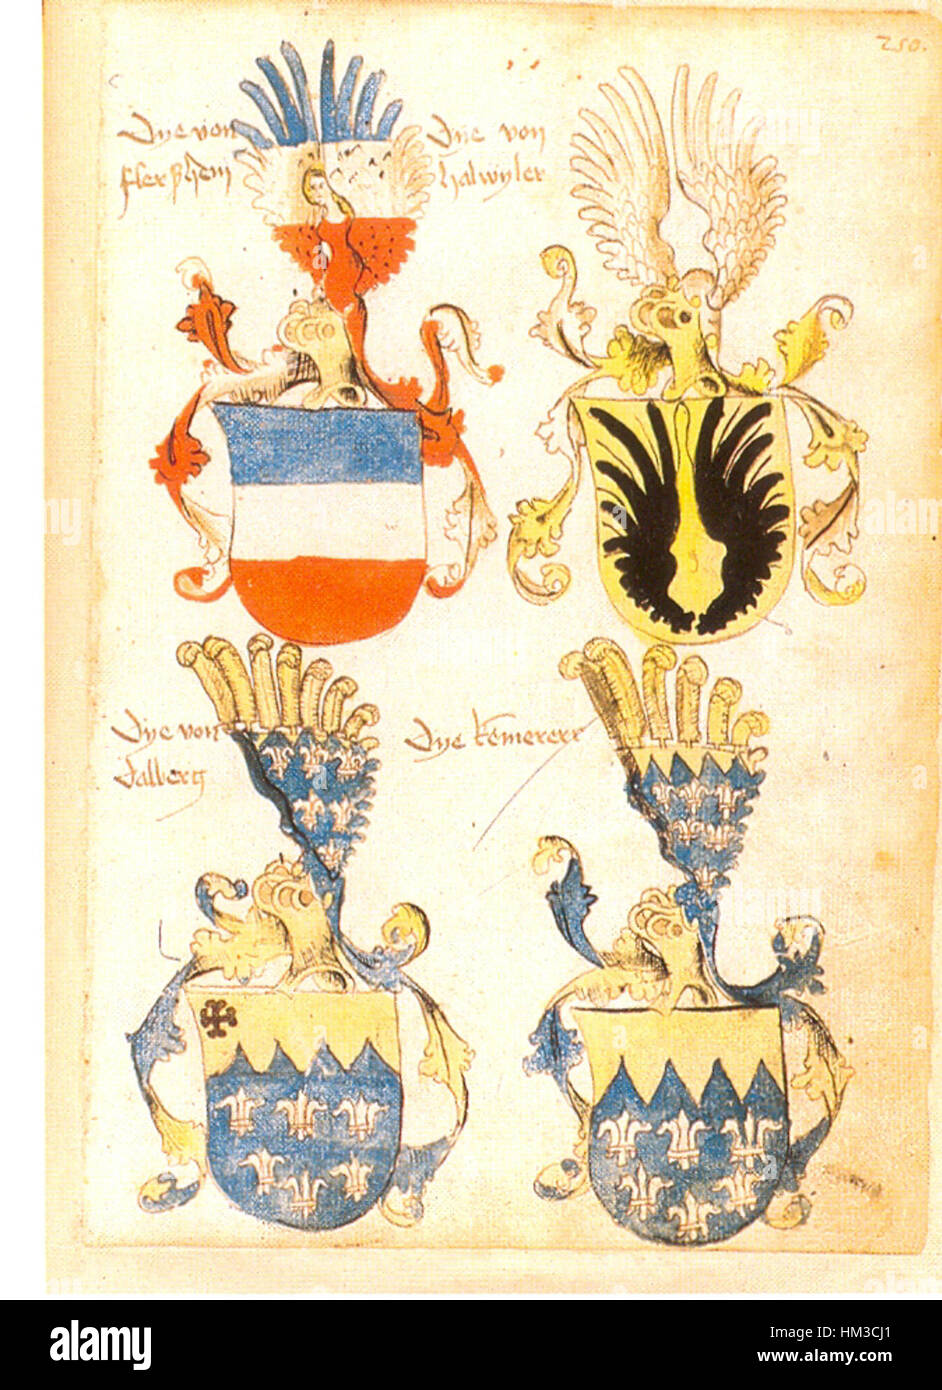 250.
Dye von
flerßheim
Dye von
halwyler
Dye von
Dalberg
Dye kemerer
alamy
Image ID: HM3CJ1
www.alamy.com